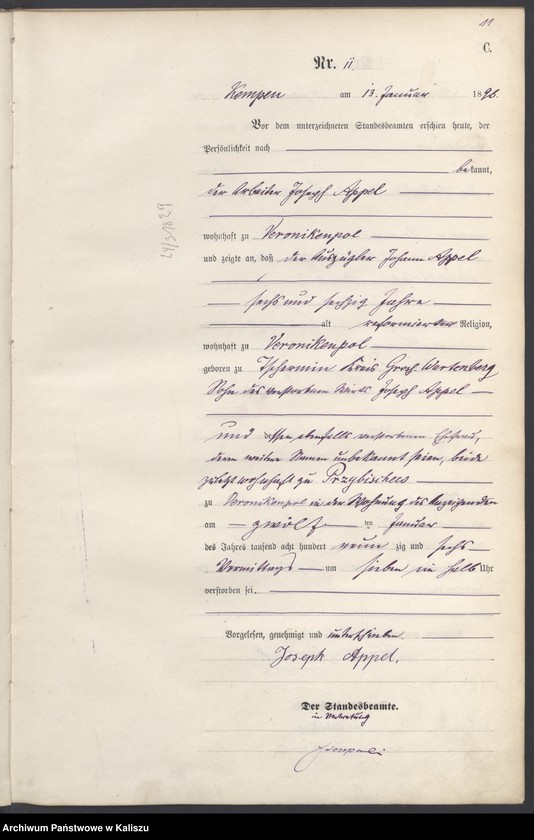 11
C.
Nr. 11
Kempen am 13. Januar 1896.
Vor dem unterzeichneten Standesbeamten erschien heute, der
Persönlichkeit nach
bekannt,
der Arbeiter Joseph Appel
24/3 1829
wohnhaft zu Veronikenpol
und zeigte an, daß der Auszügler Johann Appel
sechs und sechzig Jahre
alt reformierter Religion,
wohnhaft zu Veronikenpol
geboren zu Tschermin Kreis Groß Wartenberg
Sohn des verstorbenen Wirts Joseph Appel
und dessen ebenfalls verstorbenen Ehefrau,
deren weitere Namen unbekannt seien, beide
zuletzt wohnhaft zu
zu Veronikenpol in der Wohnung des Anzeigenden
am zwölften Januar
des Jahres tausend acht hundert neunzig und sechs
Vormittags um sieben, ein halb Uhr
verstorben sei.
Vorgelesen, genehmigt und unterschrieben.
Joseph Appel.
Der Standesbeamte.
in Vertretung
Archiwum Państwowe w Kaliszu